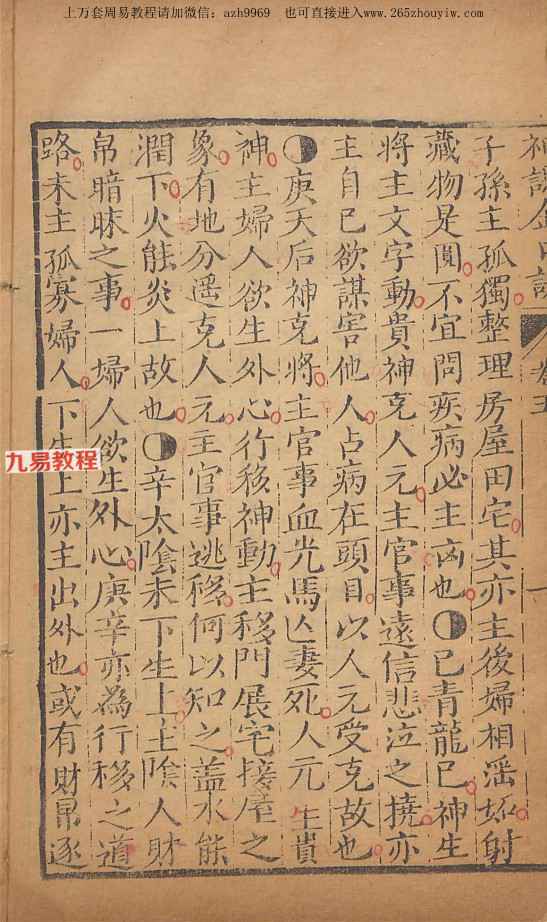 上万套周易教程请加微信：azh9969　也可直接进入www.265zhouyiw.com
卷五
子孫主孤獨整理房屋田宅其亦主後婦相滛妬射
藏物是圓不宜問疾病必主凶也◑己青龍巳神生
將主文字動貴神克人元主官事遠信悲泣之撓亦
主自己欲謀害他人占病在頭目以人元受克故也
◑庚天后神克將主官事血光馬亾妻死人元生貴
神主婦人欲生外心行移神動主移門展宅接屋之
象有地分遥克人元主官事逃移何以知之盖水能
潤下火能炎上故也◑辛太陰未下生上主陰人財
帛暗昧之事一婦人欲生外心庚辛亦為行移之道
路未主孤寡婦人下生上亦主出外也或有財帛逐
九易教程